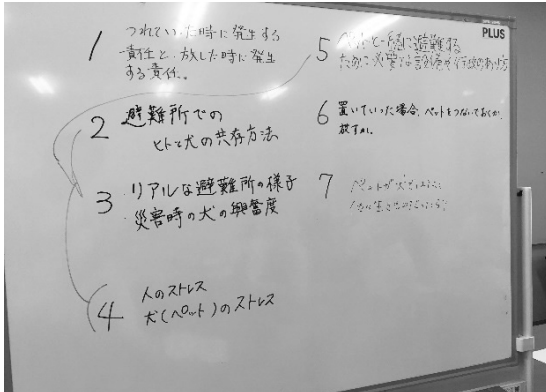 1 つれていった時に発生する
責任と、放した時に発生
する責任。
2 避難所での
ヒトと犬の共存方法
3 ・リアルな避難所の様子
・災害時の犬の興奮度
4 人のストレス
犬(ペット)のストレス
PLUS
5 ペットと一緒に避難する
ために必要な
6 置いていった場合、ペットをつないでおくか、
放すか。
7 ペットが